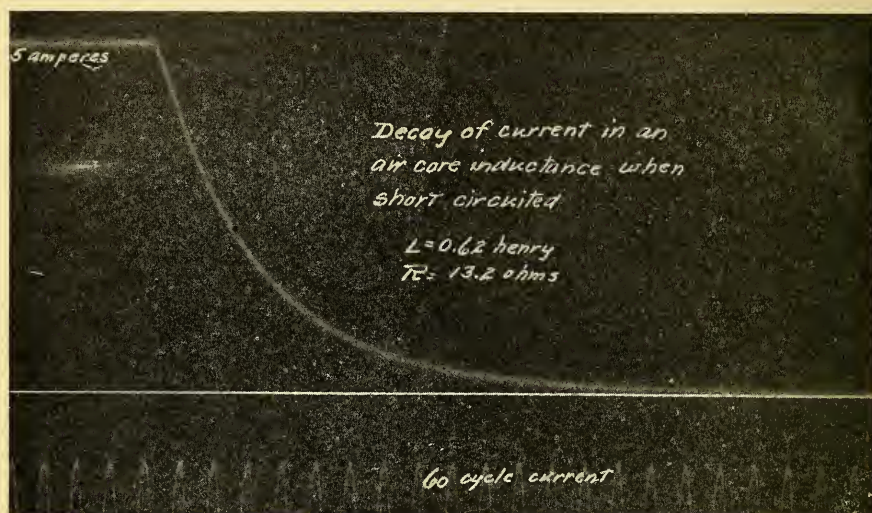 5 amperes
Decay of current in an
air core inductance when
short circuited
L=0.62 henry
R= 13.2 ohms
60 cycle current